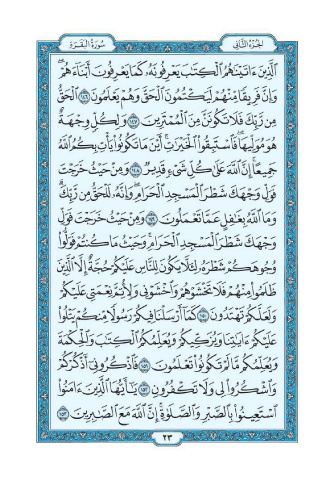 الجزء الثاني
سورة البقرة
ٱلَّذِينَ ءَاتَيْنَٰهُمُ ٱلْكِتَٰبَ يَعْرِفُونَهُۥ كَمَا يَعْرِفُونَ أَبْنَآءَهُمْ ۖ
وَإِنَّ فَرِيقًا مِّنْهُمْ لَيَكْتُمُونَ ٱلْحَقَّ وَهُمْ يَعْلَمُونَ ١٤٦ ٱلْحَقُّ
مِن رَّبِّكَ ۖ فَلَا تَكُونَنَّ مِنَ ٱلْمُمْتَرِينَ ١٤٧ وَلِكُلٍّ وِجْهَةٌ
هُوَ مُوَلِّيهَا ۖ فَٱسْتَبِقُوا۟ ٱلْخَيْرَٰتِ ۚ أَيْنَ مَا تَكُونُوا۟ يَأْتِ بِكُمُ ٱللَّهُ
جَمِيعًا ۚ إِنَّ ٱللَّهَ عَلَىٰ كُلِّ شَىْءٍ قَدِيرٌ ١٤٨ وَمِنْ حَيْثُ خَرَجْتَ
فَوَلِّ وَجْهَكَ شَطْرَ ٱلْمَسْجِدِ ٱلْحَرَامِ ۖ وَإِنَّهُۥ لَلْحَقُّ مِن رَّبِّكَ ۗ
وَمَا ٱللَّهُ بِغَٰفِلٍ عَمَّا تَعْمَلُونَ ١٤٩ وَمِنْ حَيْثُ خَرَجْتَ فَوَلِّ
وَجْهَكَ شَطْرَ ٱلْمَسْجِدِ ٱلْحَرَامِ ۚ وَحَيْثُ مَا كُنتُمْ فَوَلُّوا۟
وُجُوهَكُمْ شَطْرَهُۥ لِئَلَّا يَكُونَ لِلنَّاسِ عَلَيْكُمْ حُجَّةٌ إِلَّا ٱلَّذِينَ
ظَلَمُوا۟ مِنْهُمْ فَلَا تَخْشَوْهُمْ وَٱخْشَوْنِى وَلِأُتِمَّ نِعْمَتِى عَلَيْكُمْ
وَلَعَلَّكُمْ تَهْتَدُونَ ١٥٠ كَمَآ أَرْسَلْنَا فِيكُمْ رَسُولًا مِّنكُمْ يَتْلُوا۟
عَلَيْكُمْ ءَايَٰتِنَا وَيُزَكِّيكُمْ وَيُعَلِّمُكُمُ ٱلْكِتَٰبَ وَٱلْحِكْمَةَ
وَيُعَلِّمُكُم مَّا لَمْ تَكُونُوا۟ تَعْلَمُونَ ١٥١ فَٱذْكُرُونِىٓ أَذْكُرْكُمْ
وَٱشْكُرُوا۟ لِى وَلَا تَكْفُرُونِ ١٥٢ يَٰٓأَيُّهَا ٱلَّذِينَ ءَامَنُوا۟
ٱسْتَعِينُوا۟ بِٱلصَّبْرِ وَٱلصَّلَوٰةِ ۚ إِنَّ ٱللَّهَ مَعَ ٱلصَّٰبِرِينَ ١٥٣
٢٣